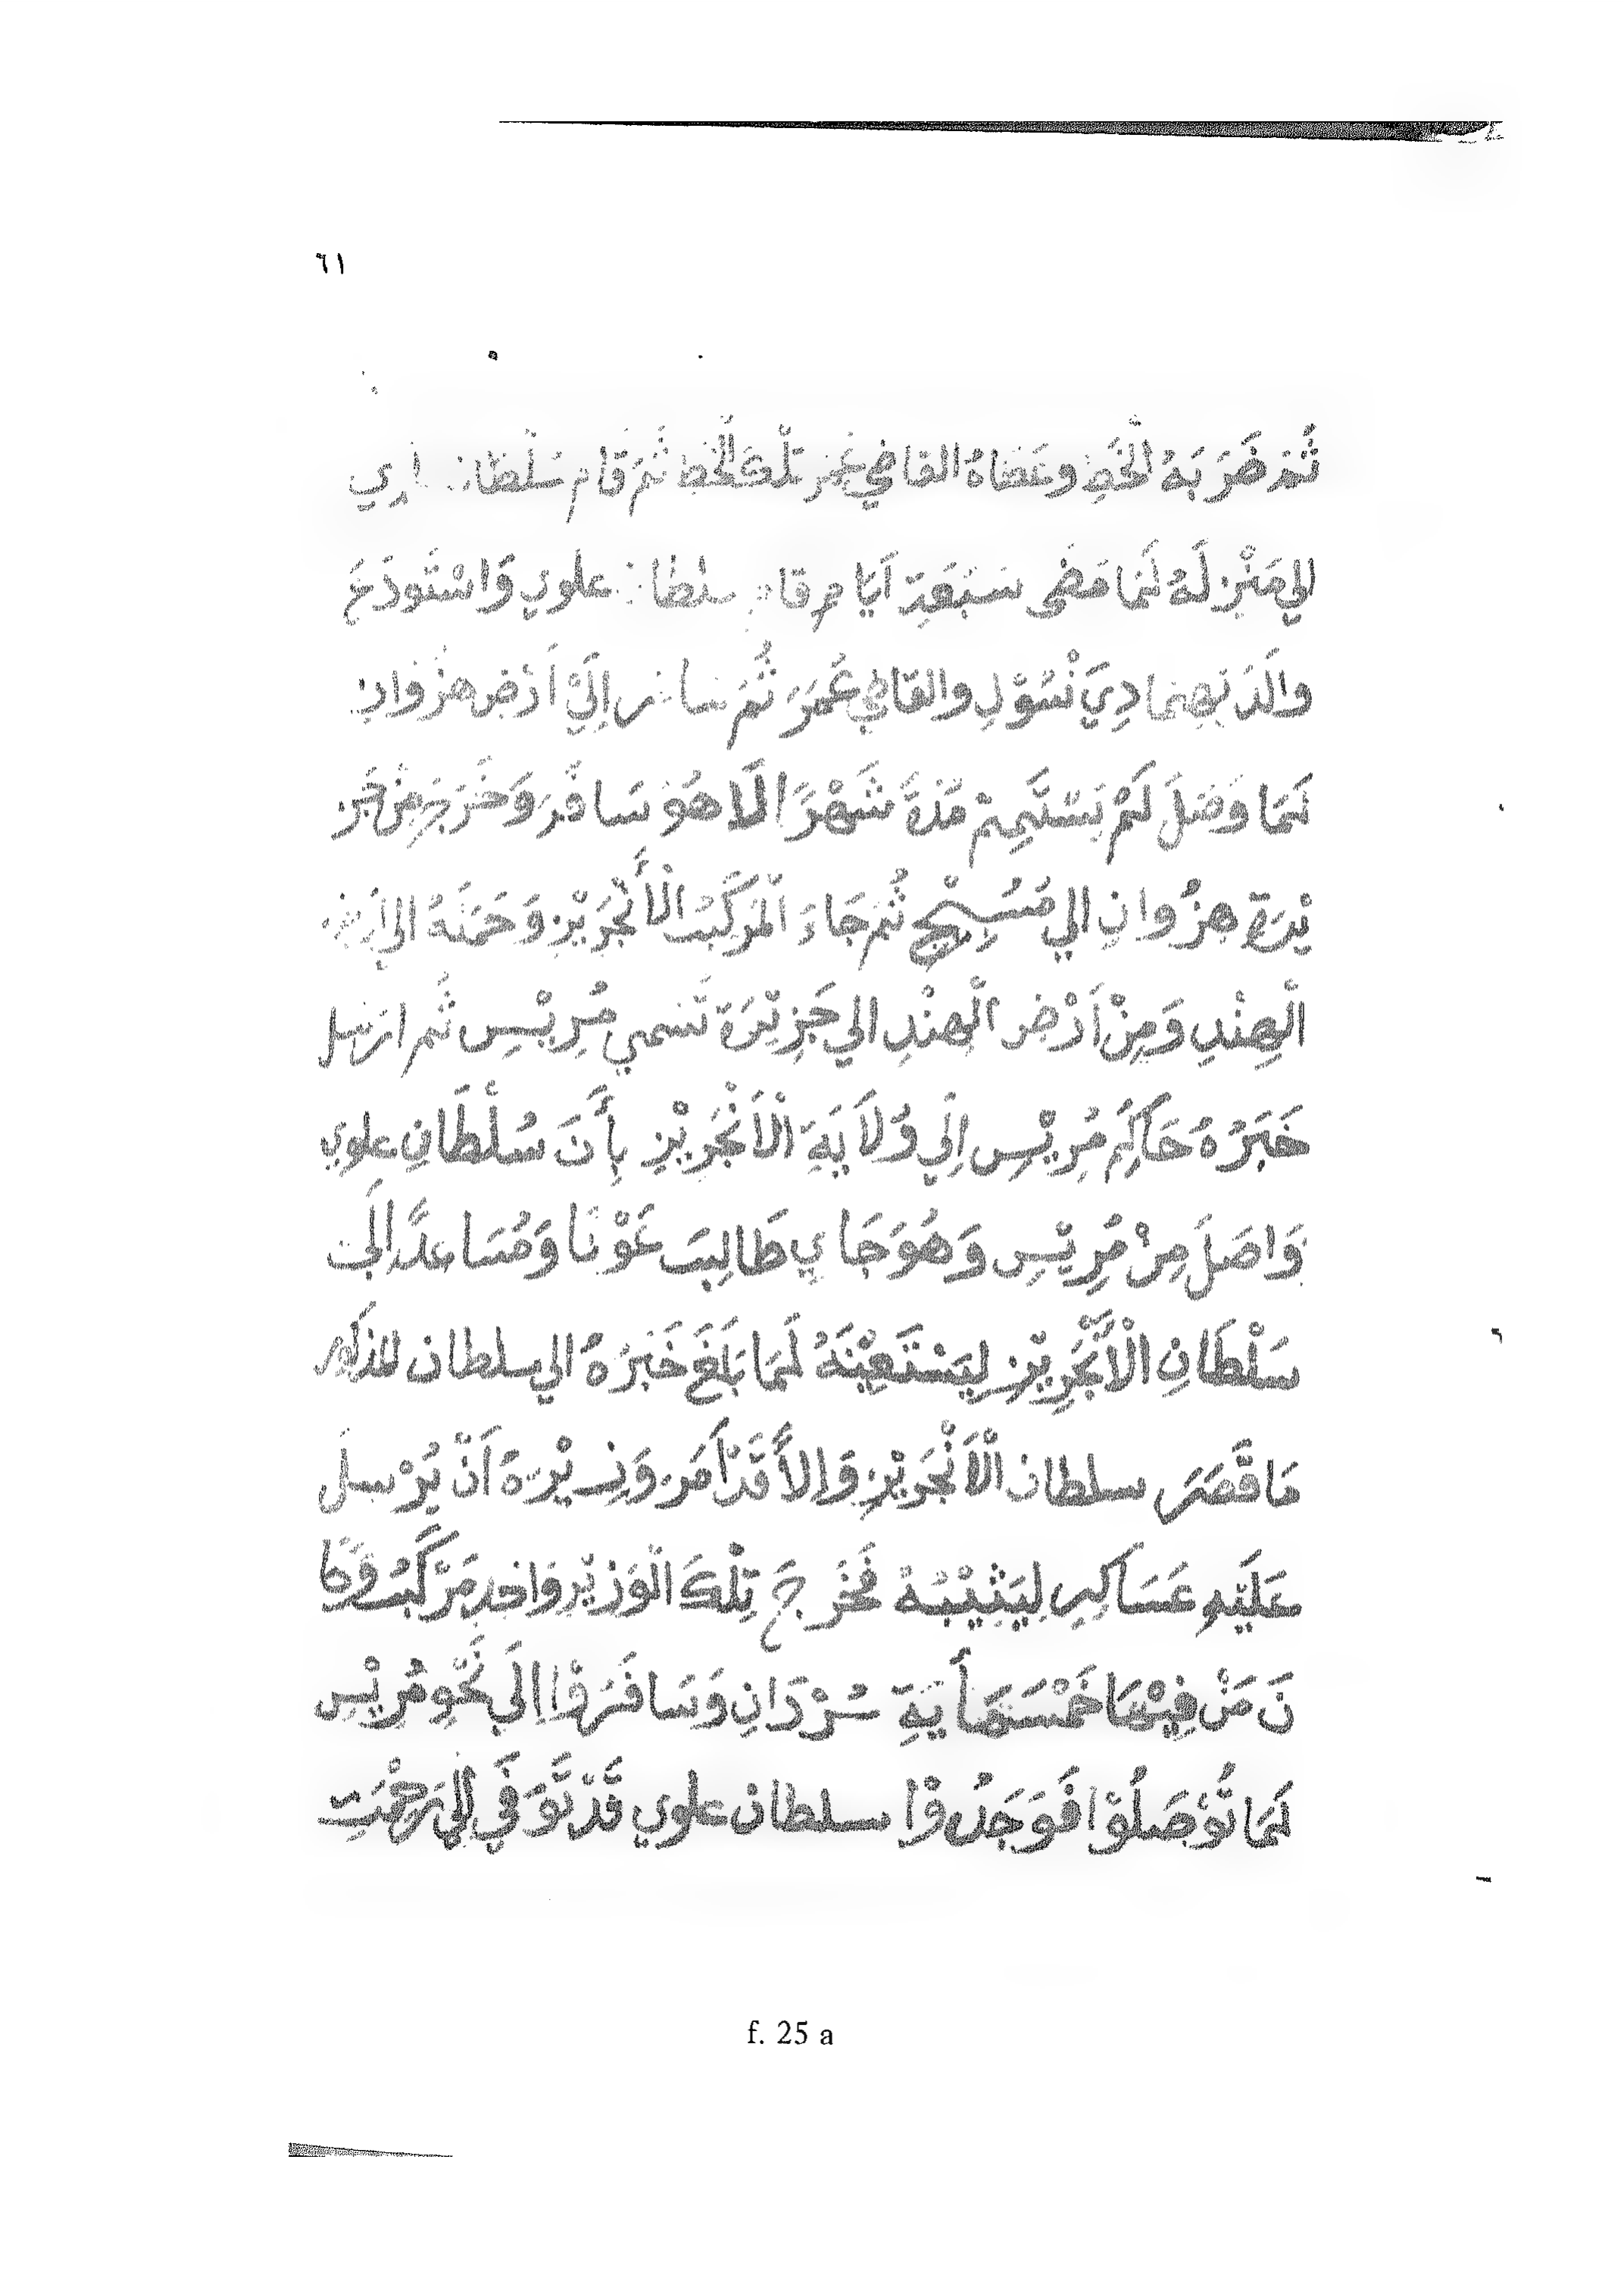 ٦١
ثُمَ ضَرَبَهُ الْخَطِ وعَطَاهُ القاضي عُمَر تِلْكَ الْخَط ثُمَ قَام سَلْطَان
الي مَنْزِلَهُ لَمَا مَضَى سَبْعَةِ اَيَام قام سلطان علوي وَاسْتَودَعَ
والَدَيْهِمَا دِيَ نْسُوْلِ والقَاضِي عُمَرَ ثُمَ سافر اِلَيْ اَرْضِ هنْزُوانِ
لَمَا وَصَلَ لَمْ يَسْتَتِمْ مُدَةَ شَهْرًا اِلَّا هُوَ سَافَرَ وَخَرَجَ مِنْ جَزِ
يْرَةِ هِنْزُوانِ الي مُسُبِيْجِ ثُمَ جَاءَ الْمَرْكَبُ الْأَنْجَرَيْزِ وَحَمَلَهُ الي اَرْضِ
الْهِنْدِ وَمِنْ اَرْضِ الْهِنْدِ الي جَزِيْرَة تَسَمي مُرِيْسِ ثُم ارْسَل
خَبَرُهُ حَاكِمُ مُرِيْسِ اِلَي وُلَايَةِ الْاَنْجَرَيْزِ بِأَنَ سُلْطَانِ علوي
وَاصَلَ مِنْ مُرِيْسِ وَهُوَ جَاي طَالِبَ عَوْنًا وَمُسَاعدًا اِلَي
سَلْطَانِ الْاَنْجَرِيْزِ لِيَسْتَعِيْنَهُ لَمَا بَلَغَ خَبَرُهُ الي سلطان المذكور
مَا قَصَرَ سلطان الْاَنْجَرَيْزِ وَاِلاَّ قَدْ اَمَرَ وَزِيْرَهُ اَنْ يُرْسِلَ
عَلَيْهِ عَسَاكِرِ لِيَثِيْبُهُ فَخَرَجَ تِلْكَ الْوَزِيْرِ وَاحِدِ مَرْكَبُ وَكَا
نَ مَنْ فِيْهَا خَمْسَمَأيَةِ سُرْدَانِ وَسَافَرُوْا اِلَي نَحْوِ مُرِيْسِ
لَمَا تُوْصَلُوْا فَوَجَدُوْا سلطان علوي قَدْ تَوَفَي اِلَي رَحْمَتِ
f. 25 a